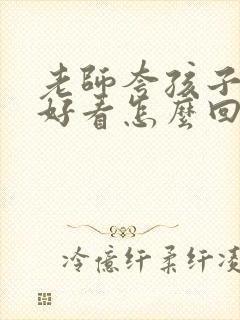 老師夸孩子
好看怎麼回
冷億纤柔纤凌